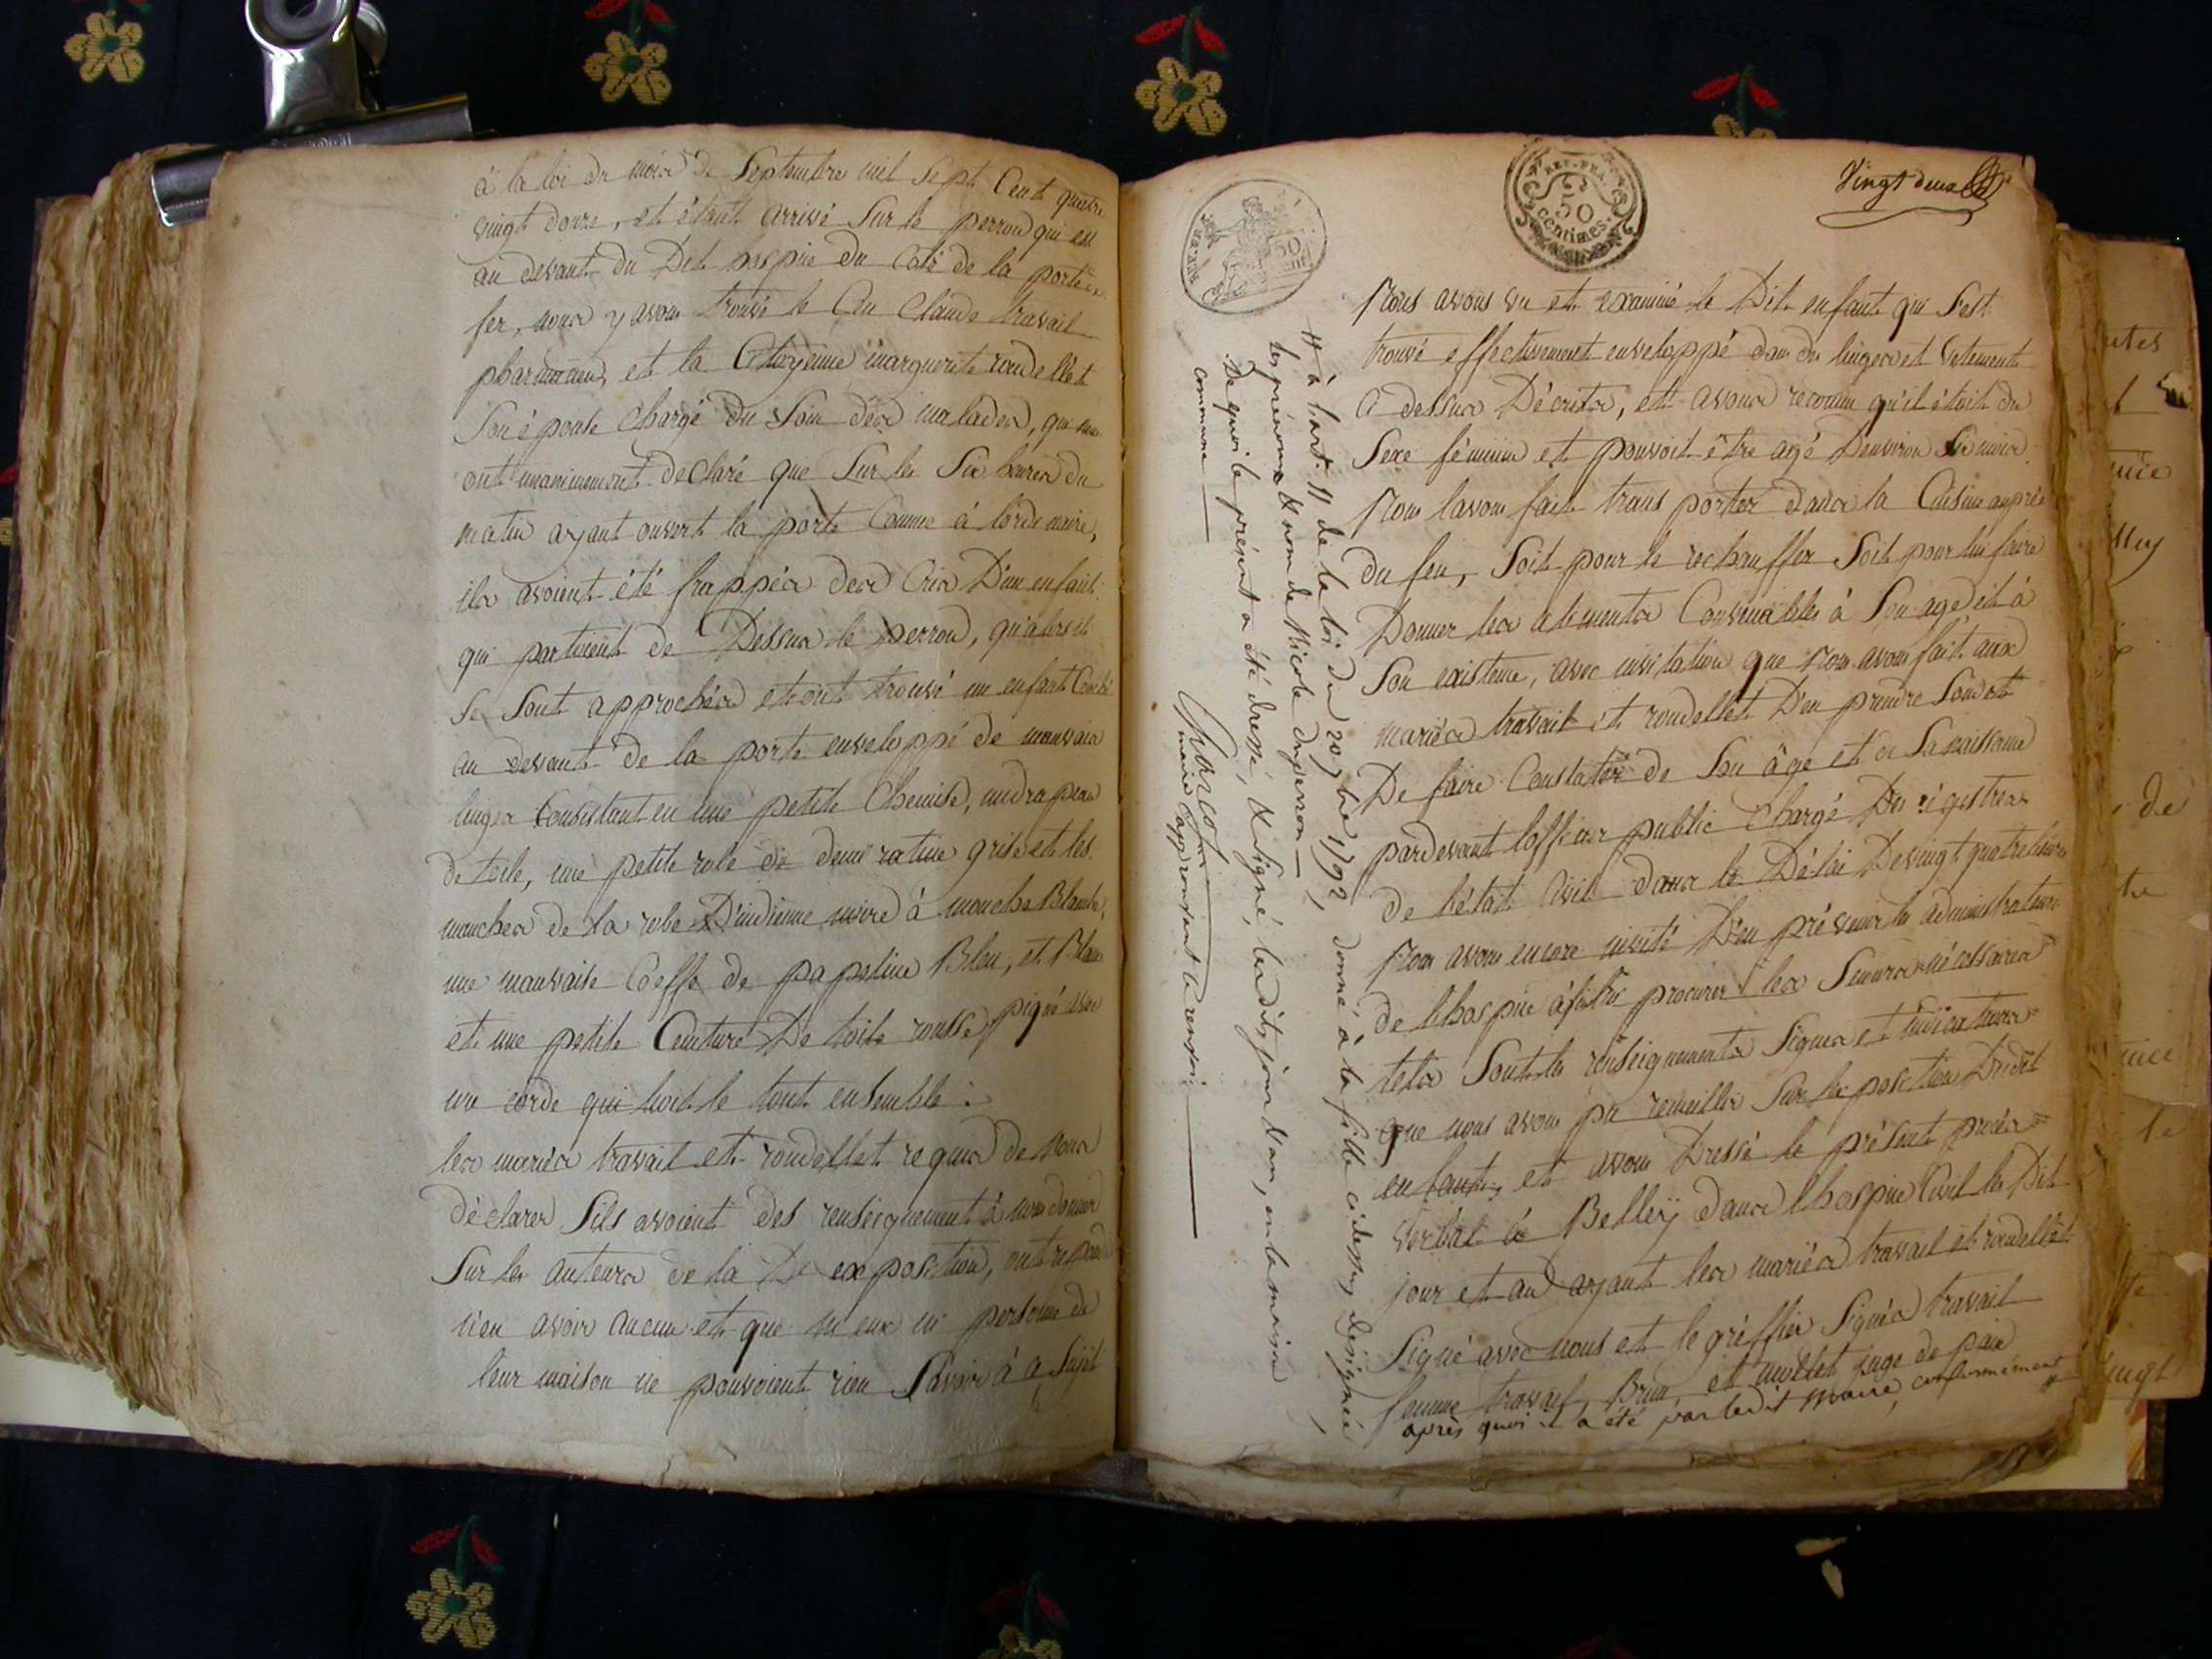 à la loi du mois de Septembre mil Sept Cent quatre
vingt douze, et étant arrivé Sur le perron qui est
au devant du Dit hospice du Coté de la porte de
fer, nous y avons trouvé le Cen Claude travail
pharmacien, et la Citoyenne marguerite rondellet
Son épouse Chargé du Soin des malades, qui nous
ont unanimement declaré que Sur les Six heures du
matin ayant ouvert la porte Comme à lordinaire,
ils avoient été frappés des Cris D'un enfant
qui partoient de Dessus le perron, qu'alors ils
Se Sont approchés et ont trouvé un enfant Couché
au devant de la porte enveloppé de mauvais
linges Consistant en une petite Chemise, un drapeau
de toile, une petite robe de demi ratine grise et les
manches de la robe D'indienne noire à mouche Blanche,
une mauvaise Coeffe de papeline Bleu, et Blanc
et une petite Ceinture De toile rousse piqué avec
une corde qui lioit le tout ensemble.
les mariés travail et rondellet requis de nous
déclarer Sils avoient des renseignement à nous donner
Sur les auteurs de la De exposition, ont repondu
n'en avoir aucun et que ni eux ni personne de
leur maison ne pouvoient rien Savoir à ce Sujet
Vingt deux
REP. FRA.
50
centimes
50
cent
Nous avons vu et examiné le Dit enfant qui S'est
trouvé effectivement enveloppé dans du linges et Vetements
Ci dessus Décrits, et avons reconnu qu'il étoit du
Sexe féminin et pouvoit être agé D'environ Six mois
Nous lavons fait transporter dans la Cuisine auprès
du feu, Soit pour le rechauffer Soit pour lui faire
Donner les aliments Convenables à Son age et à
Son existence, avec invitation que Nous avons fait aux
mariés travail et rondellet D'en prendre Soin et
De faire Constater de Son âge et de Sa naissance
pardevant lofficier public Chargé Des régistres
de l'état Civil dans le Délai De vingt quatre heures
Nous avons encore invité D'en prévenir les administrateurs
de lhospice à procurer les Secours nécessaires
tels Sont les renseignements Signes et indications
que nous avons pu recueillir Sur lexposition Dudit
enfant, et avons Dressé le présent procès
verbal à Belley dans lhospice Civil les Dit
jour et an ayant les mariés travail et rondellet
Signé avec nous et le gréffier Signés travail
femme travail, Brun, et mollet juge de paix
après quoi il a été par ledit Maire, conformément
# à l'art. 11 de la loi du 20 7bre 1792, donné à la fille ci dessus désignée,
les prénoms & nom de Nicole duperron
De quoi le présent a été dressé, & signé, lesdits jour & an, en la maison
commune
maire approuvant le renvoi